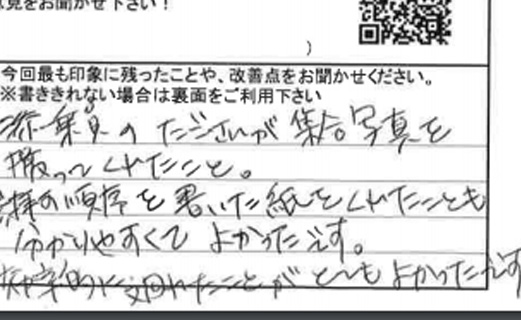 見をお聞かせ下さい！
）
今回最も印象に残ったことや、改善点をお聞かせください。
※書ききれない場合は裏面をご利用下さい
添乗員の たださんが 集合写真を
撮ってくれたこと。
の順序を書いた紙をくれたことも
分かりやすくて よかったです。
効率的に回れたことが とてもよかったです